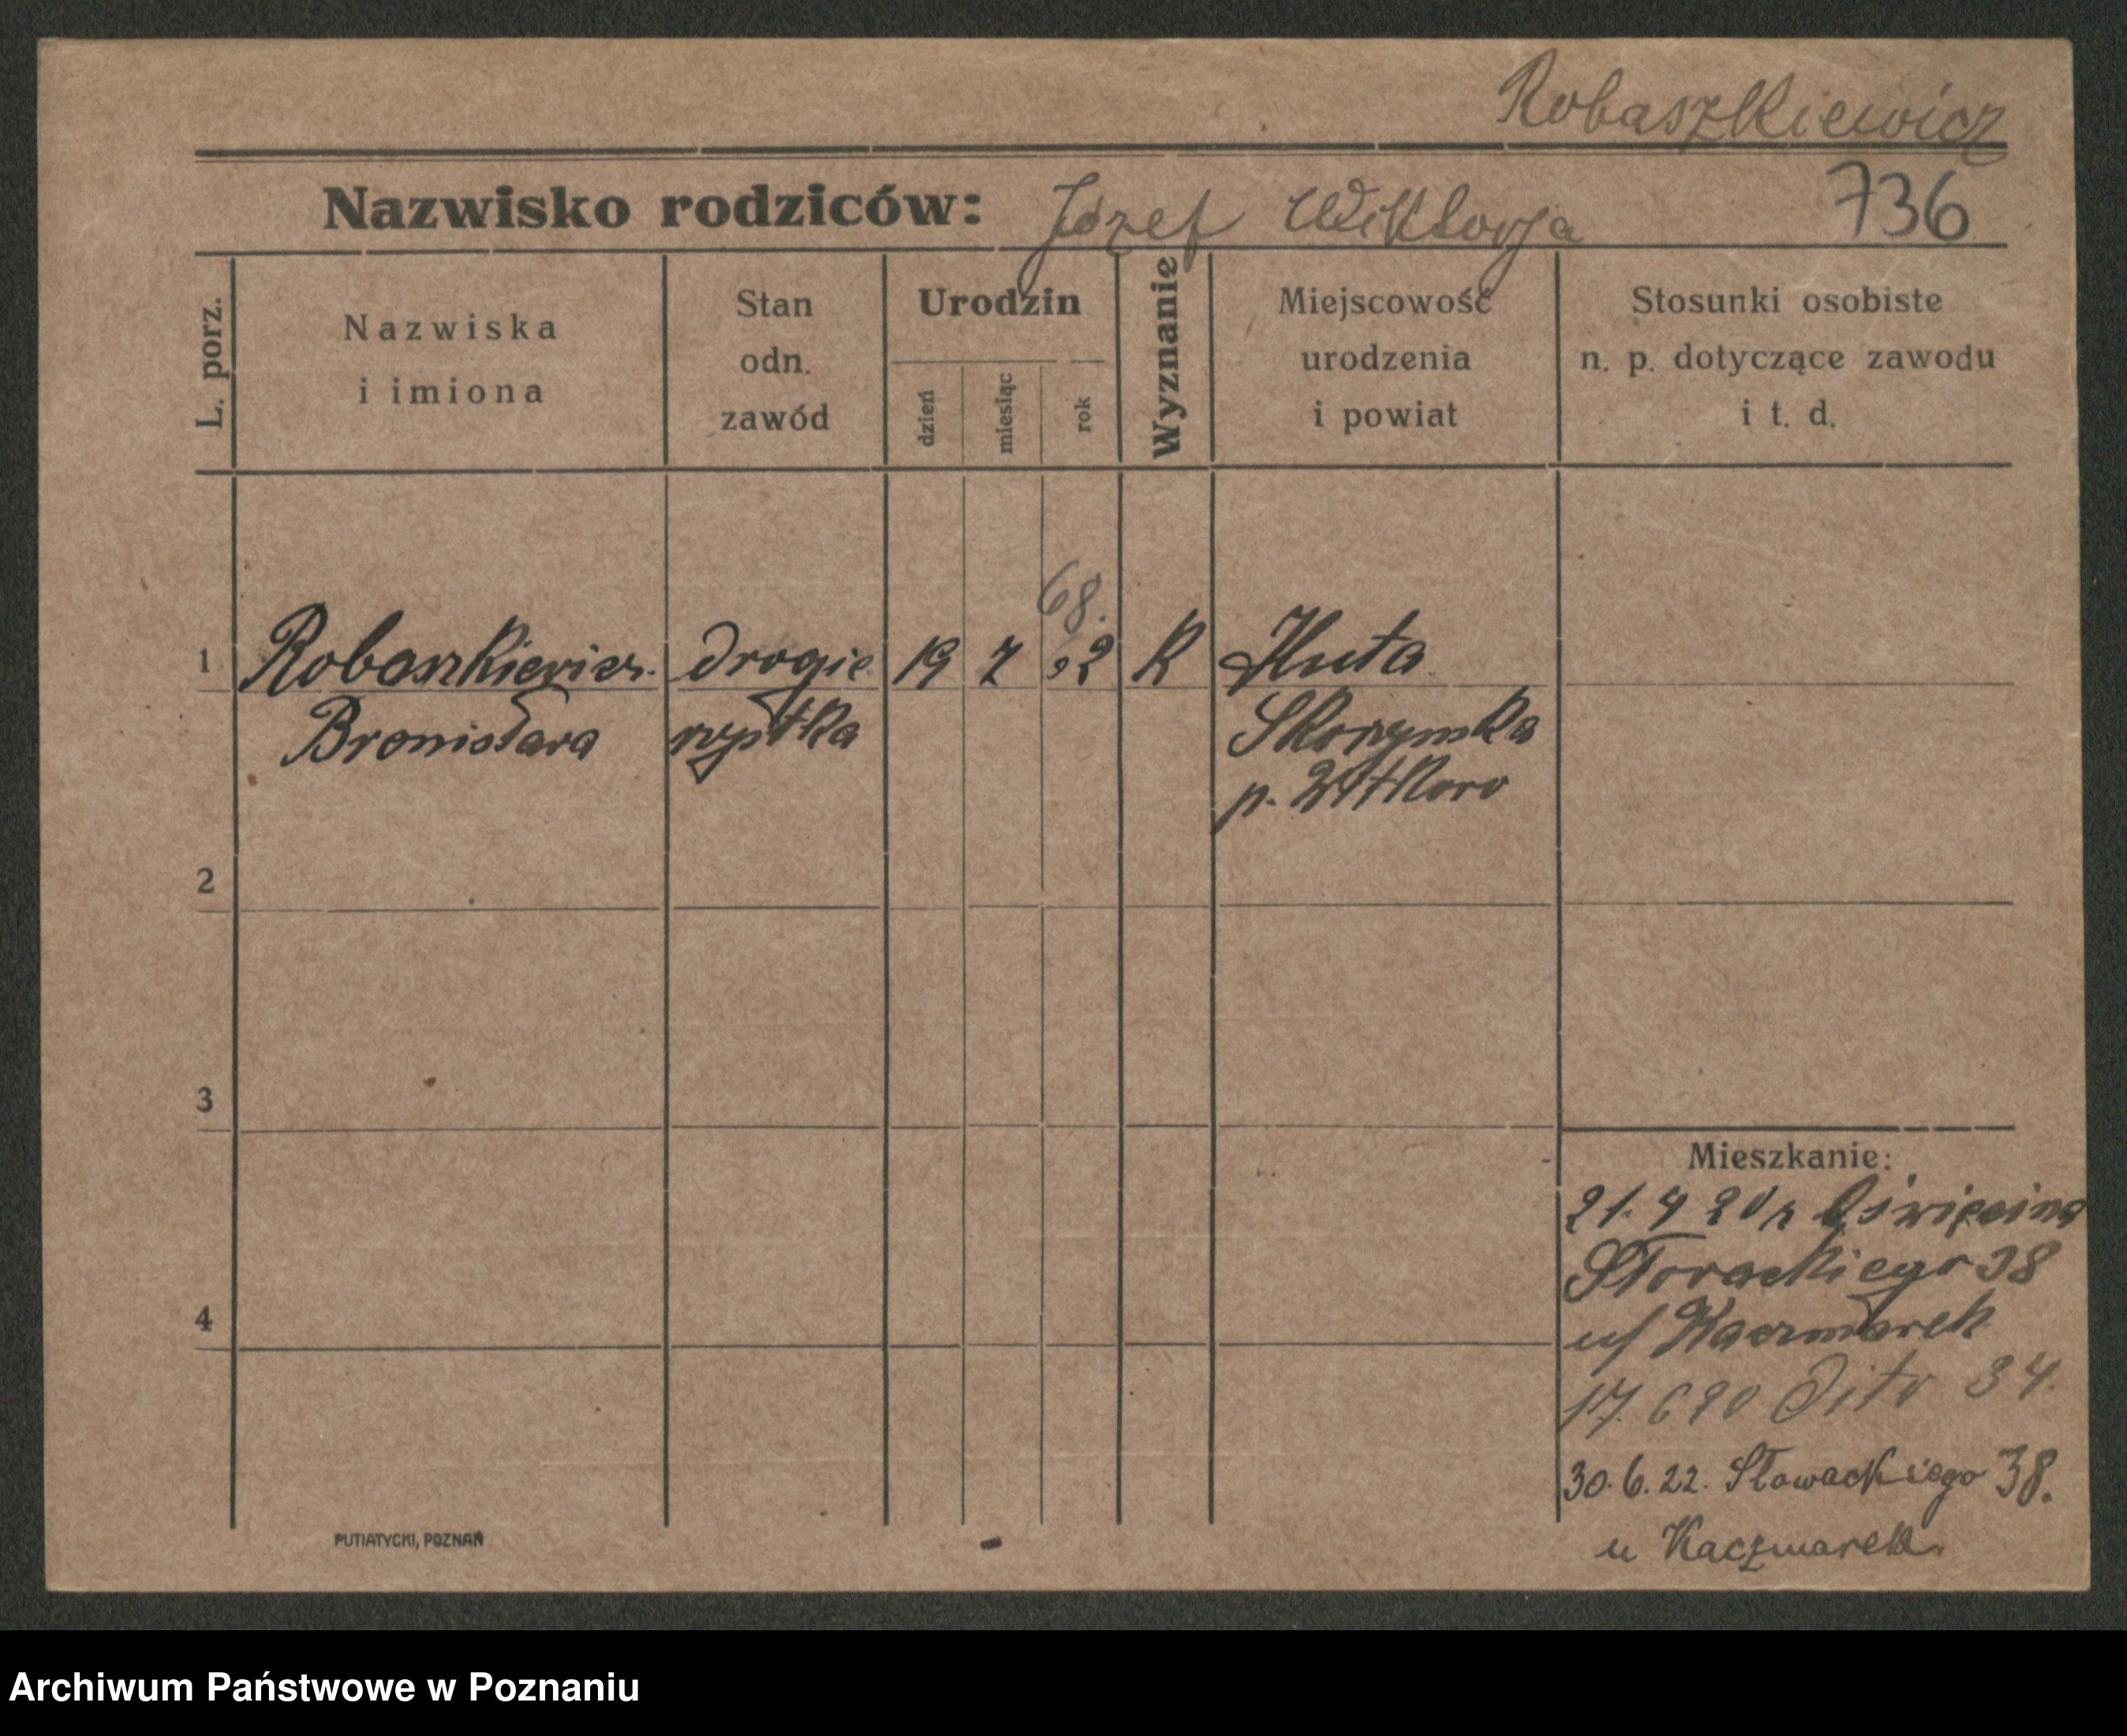 Robaszkiewicz
Nazwisko rodziców: Józef Wiktorja 736
L. porz.
Nazwiska
i imiona
Stan
odn.
zawód
Urodzin
dzień
miesiąc
rok
Wyznanie
Miejscowość
urodzenia
i powiat
Stosunki osobiste
n. p. dotyczące zawodu
i t. d.
68.
1 Robaszkiewicz drogie 19 7 92 K Huta
Bronisława rzystka Skorzymka
p. Witkowo
2
3
Mieszkanie:
21. 4 20 r Oświęcima
Słowackiego 38
4
u/ Kaczmarek
17. 6 20 Dito 34.
30. 6. 22. Słowackiego 38.
u Kaczmarek.
PUTIATYCKI, POZNAŃ
Archiwum Państwowe w Poznaniu